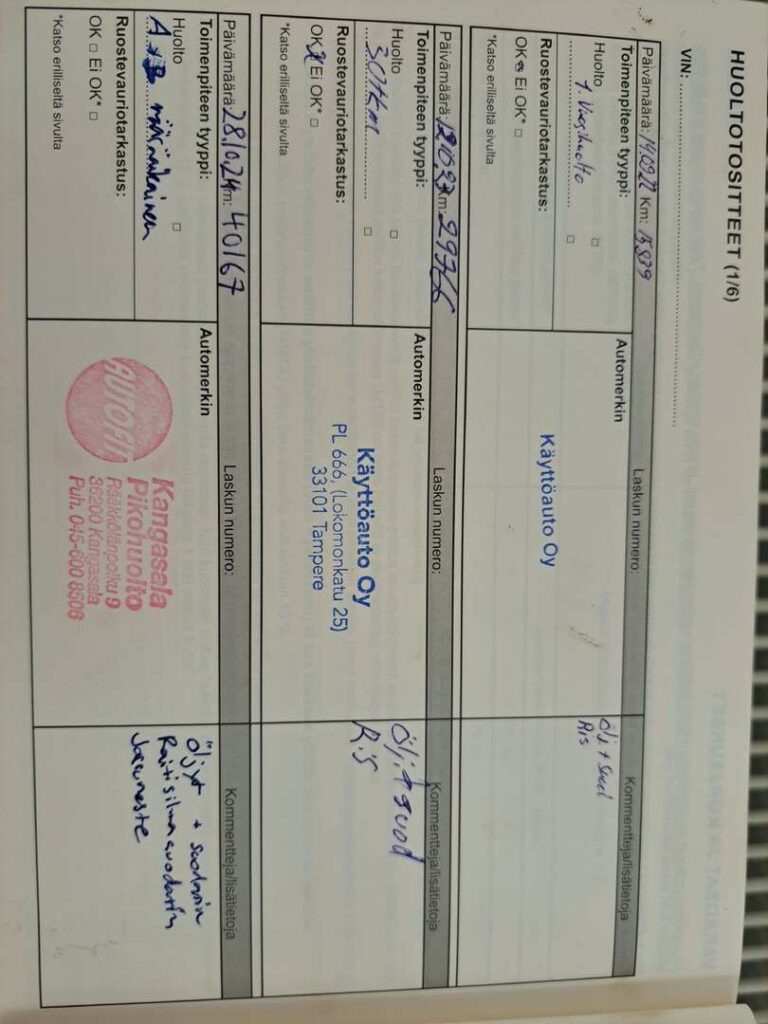 HUOLTOTOSITTEET (1/6)
VIN:
Päivämäärä: 14.09.22 Km: 15839
Laskun numero:
Kommentteja/lisätietoja
Toimenpiteen tyyppi:
Huolto
1. Vuosihuolto
Ruostevauriotarkastus:
OK Ei OK*
*Katso erilliseltä sivulta
Automerkin
Käyttöauto Oy
Ölj + suod
RiS
Päivämäärä: Km: 29766
Laskun numero:
Kommentteja/lisätietoja
Toimenpiteen tyyppi:
Huolto
30tkm
Ruostevauriotarkastus:
OK Ei OK*
*Katso erilliseltä sivulta
Automerkin
Käyttöauto Oy
PL 666, (Lokomonkatu 25)
33101 Tampere
Ölj.+suod
R.S
Päivämäärä: 28.10.24 Km: 40167
Laskun numero:
Kommentteja/lisätietoja
Toimenpiteen tyyppi:
Huolto
A+B määräaikainen
Ruostevauriotarkastus:
OK Ei OK*
*Katso erilliseltä sivulta
Automerkin
AUTOFIT
Kangasala
Pikohuolto
36200 Kangasala
Puh. 045-600 8506
Öljyt + suodatin
Raitisilmasuodatin
Jarruneste